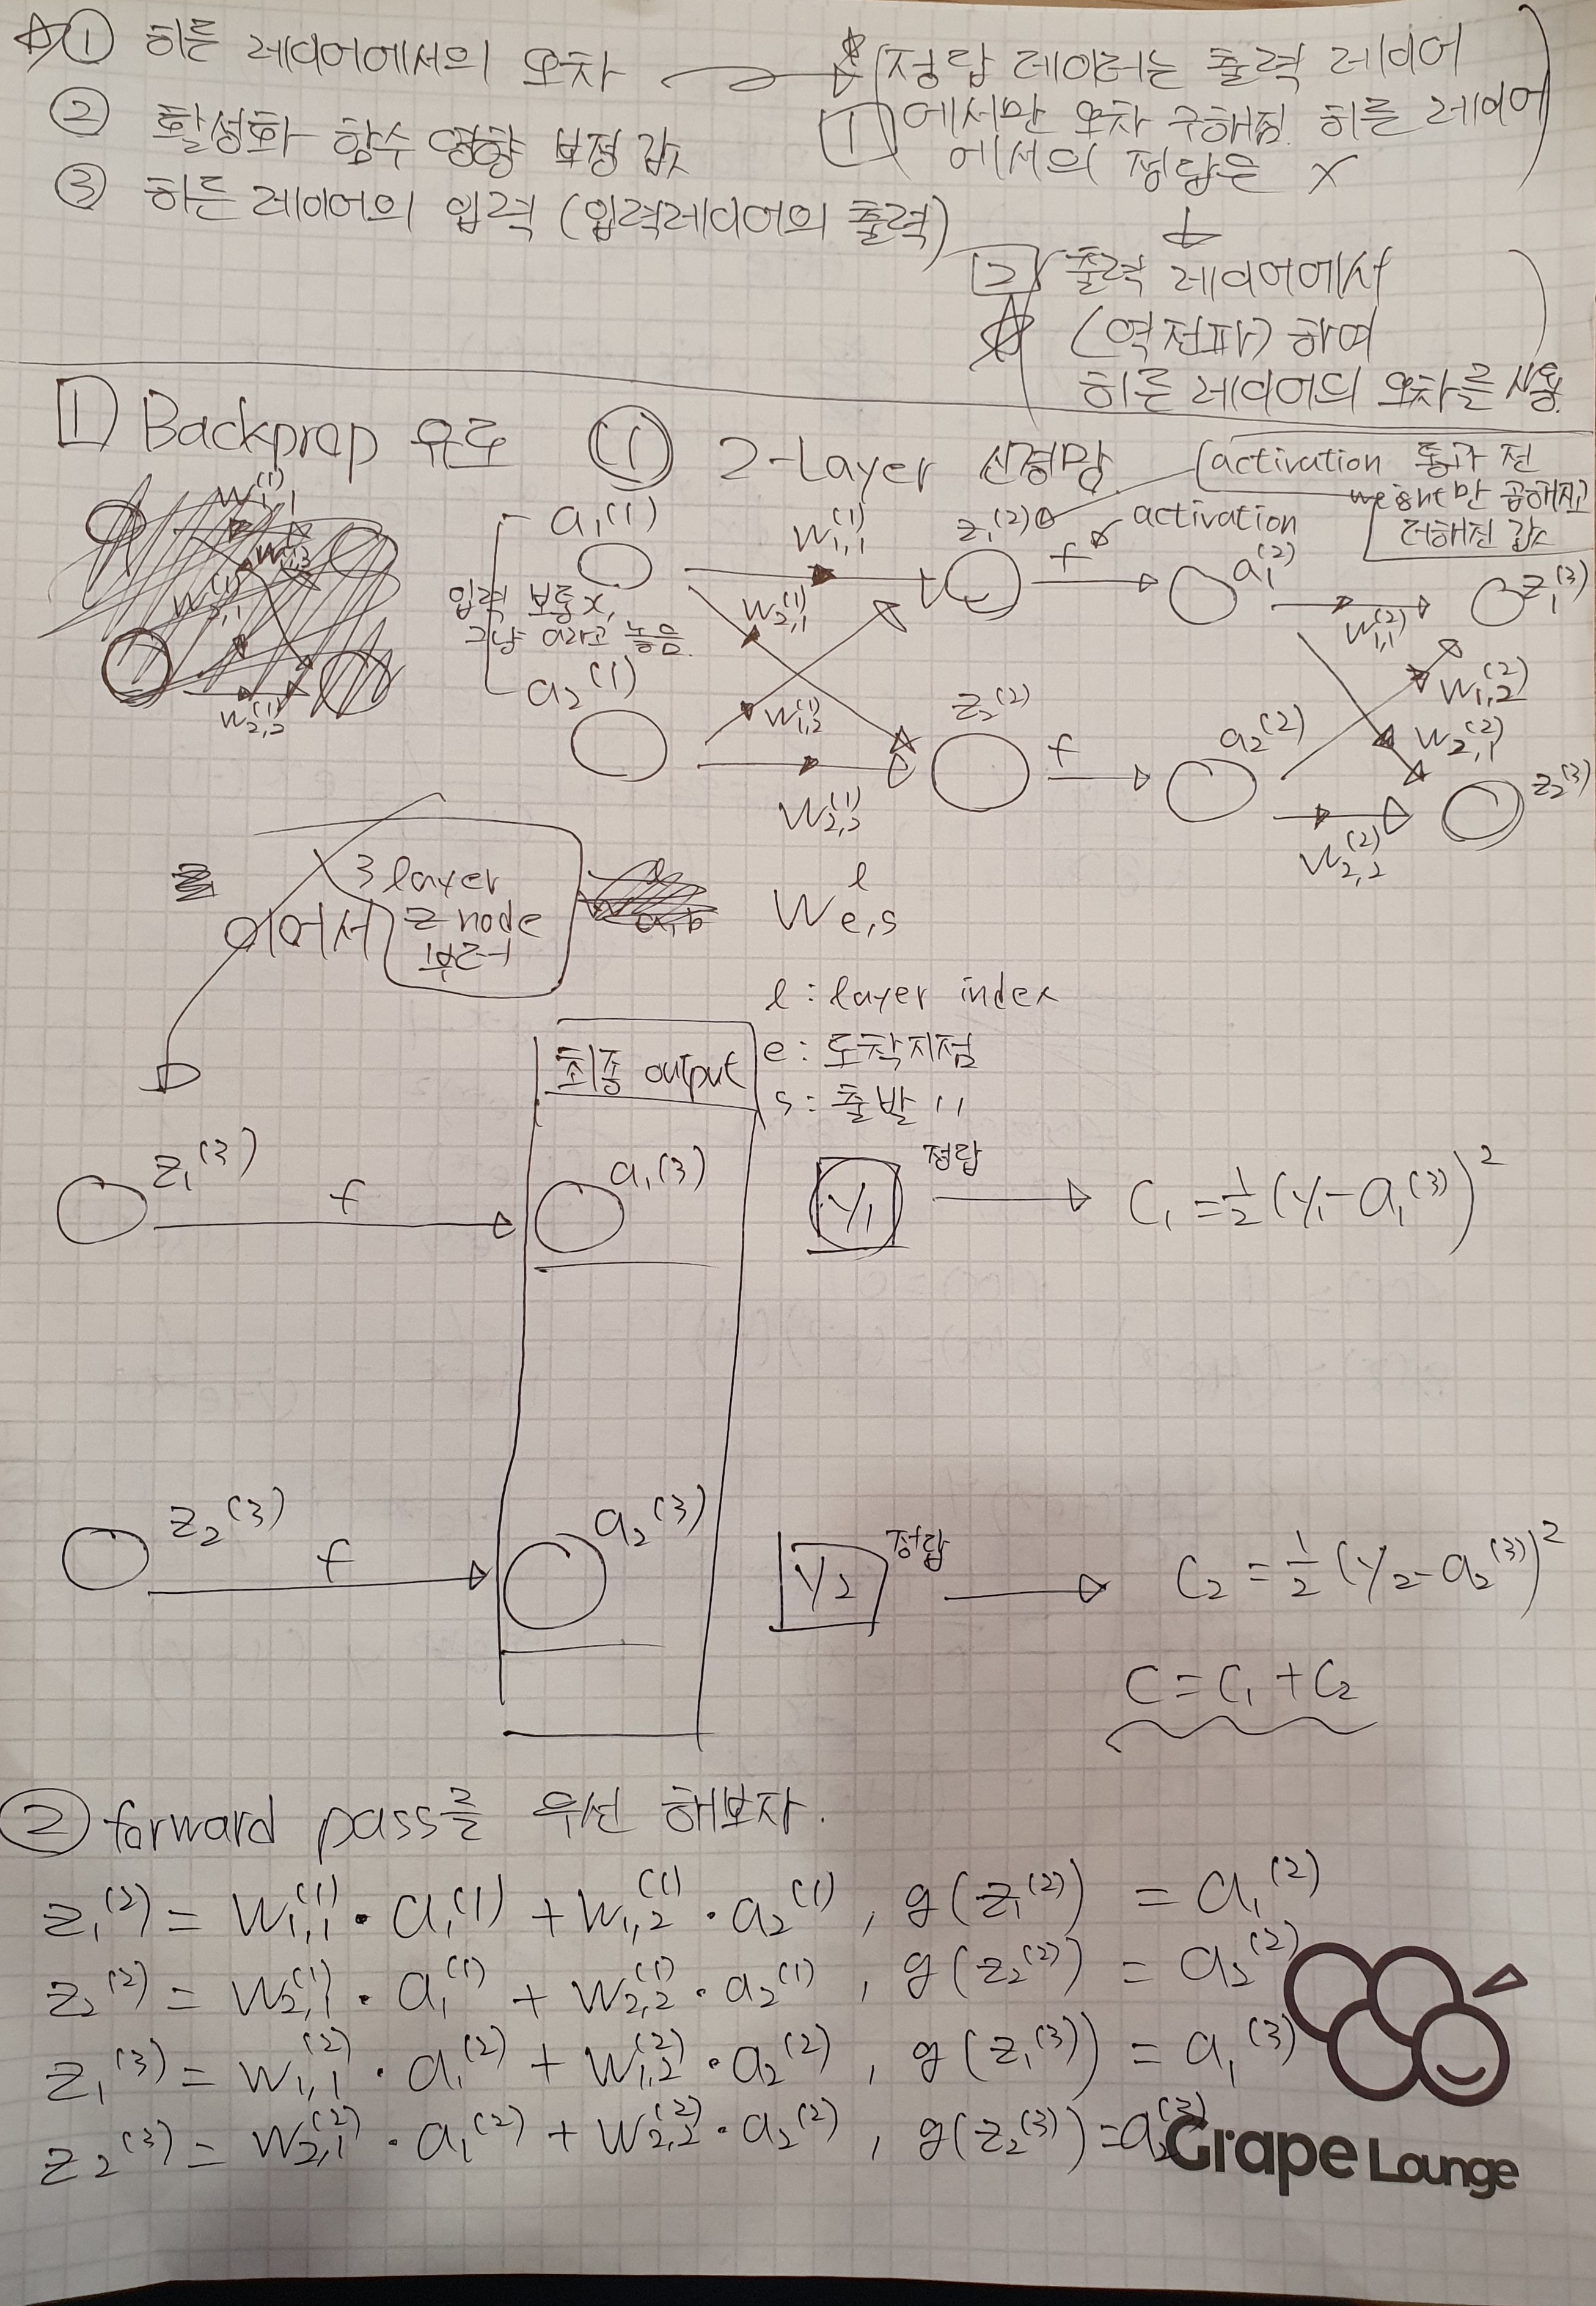 ① 히든 레이어에서의 오차
② 활성화 함수 영향 보정 값
③ 히든 레이어의 입력 (입력레이어의 출력)
1 정답 레이터는 출력 레이어
에서만 오차 구해짐. 히든 레이어
에서의 정답은 X
2 출력 레이어에서
(역전파) 하여
히든 레이어의 오차를 사용
1 Backprop 유도 ① 2-Layer 신경망
activation 통과 전
weight만 곱해지고
더해진 값
w₁,₁⁽¹⁾
w₂,₁⁽¹⁾
w₂,₂⁽¹⁾
a₁⁽¹⁾
입력 보통 x,
그냥 a라고 놓음.
a₂⁽¹⁾
w₁,₁⁽¹⁾
w₂,₁⁽¹⁾
w₁,₂⁽¹⁾
w₂,₂⁽¹⁾
z₁⁽²⁾ f activation a₁⁽²⁾
z₂⁽²⁾ f a₂⁽²⁾
w₁,₁⁽²⁾
w₁,₂⁽²⁾
w₂,₁⁽²⁾
w₂,₂⁽²⁾
z₁⁽³⁾
z₂⁽³⁾
이어서
3 layer
z node
부터
wₑ,ₛˡ
l : layer index
e : 도착지점
s : 출발 〃
최종 output
z₁⁽³⁾ f a₁⁽³⁾ y₁ 정답 C₁ = ½(y₁ - a₁⁽³⁾)²
z₂⁽³⁾ f a₂⁽³⁾ y₂ 정답 C₂ = ½(y₂ - a₂⁽³⁾)²
C = C₁ + C₂
② forward pass를 우선 해보자.
z₁⁽²⁾ = w₁,₁⁽¹⁾ · a₁⁽¹⁾ + w₁,₂⁽¹⁾ · a₂⁽¹⁾ , g(z₁⁽²⁾) = a₁⁽²⁾
z₂⁽²⁾ = w₂,₁⁽¹⁾ · a₁⁽¹⁾ + w₂,₂⁽¹⁾ · a₂⁽¹⁾ , g(z₂⁽²⁾) = a₂⁽²⁾
z₁⁽³⁾ = w₁,₁⁽²⁾ · a₁⁽²⁾ + w₁,₂⁽²⁾ · a₂⁽²⁾ , g(z₁⁽³⁾) = a₁⁽³⁾
z₂⁽³⁾ = w₂,₁⁽²⁾ · a₁⁽²⁾ + w₂,₂⁽²⁾ · a₂⁽²⁾ , g(z₂⁽³⁾) = a₂⁽³⁾
Grape Lounge